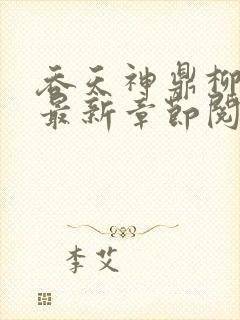 吞天神鼎柳
最新章节阅
李艾